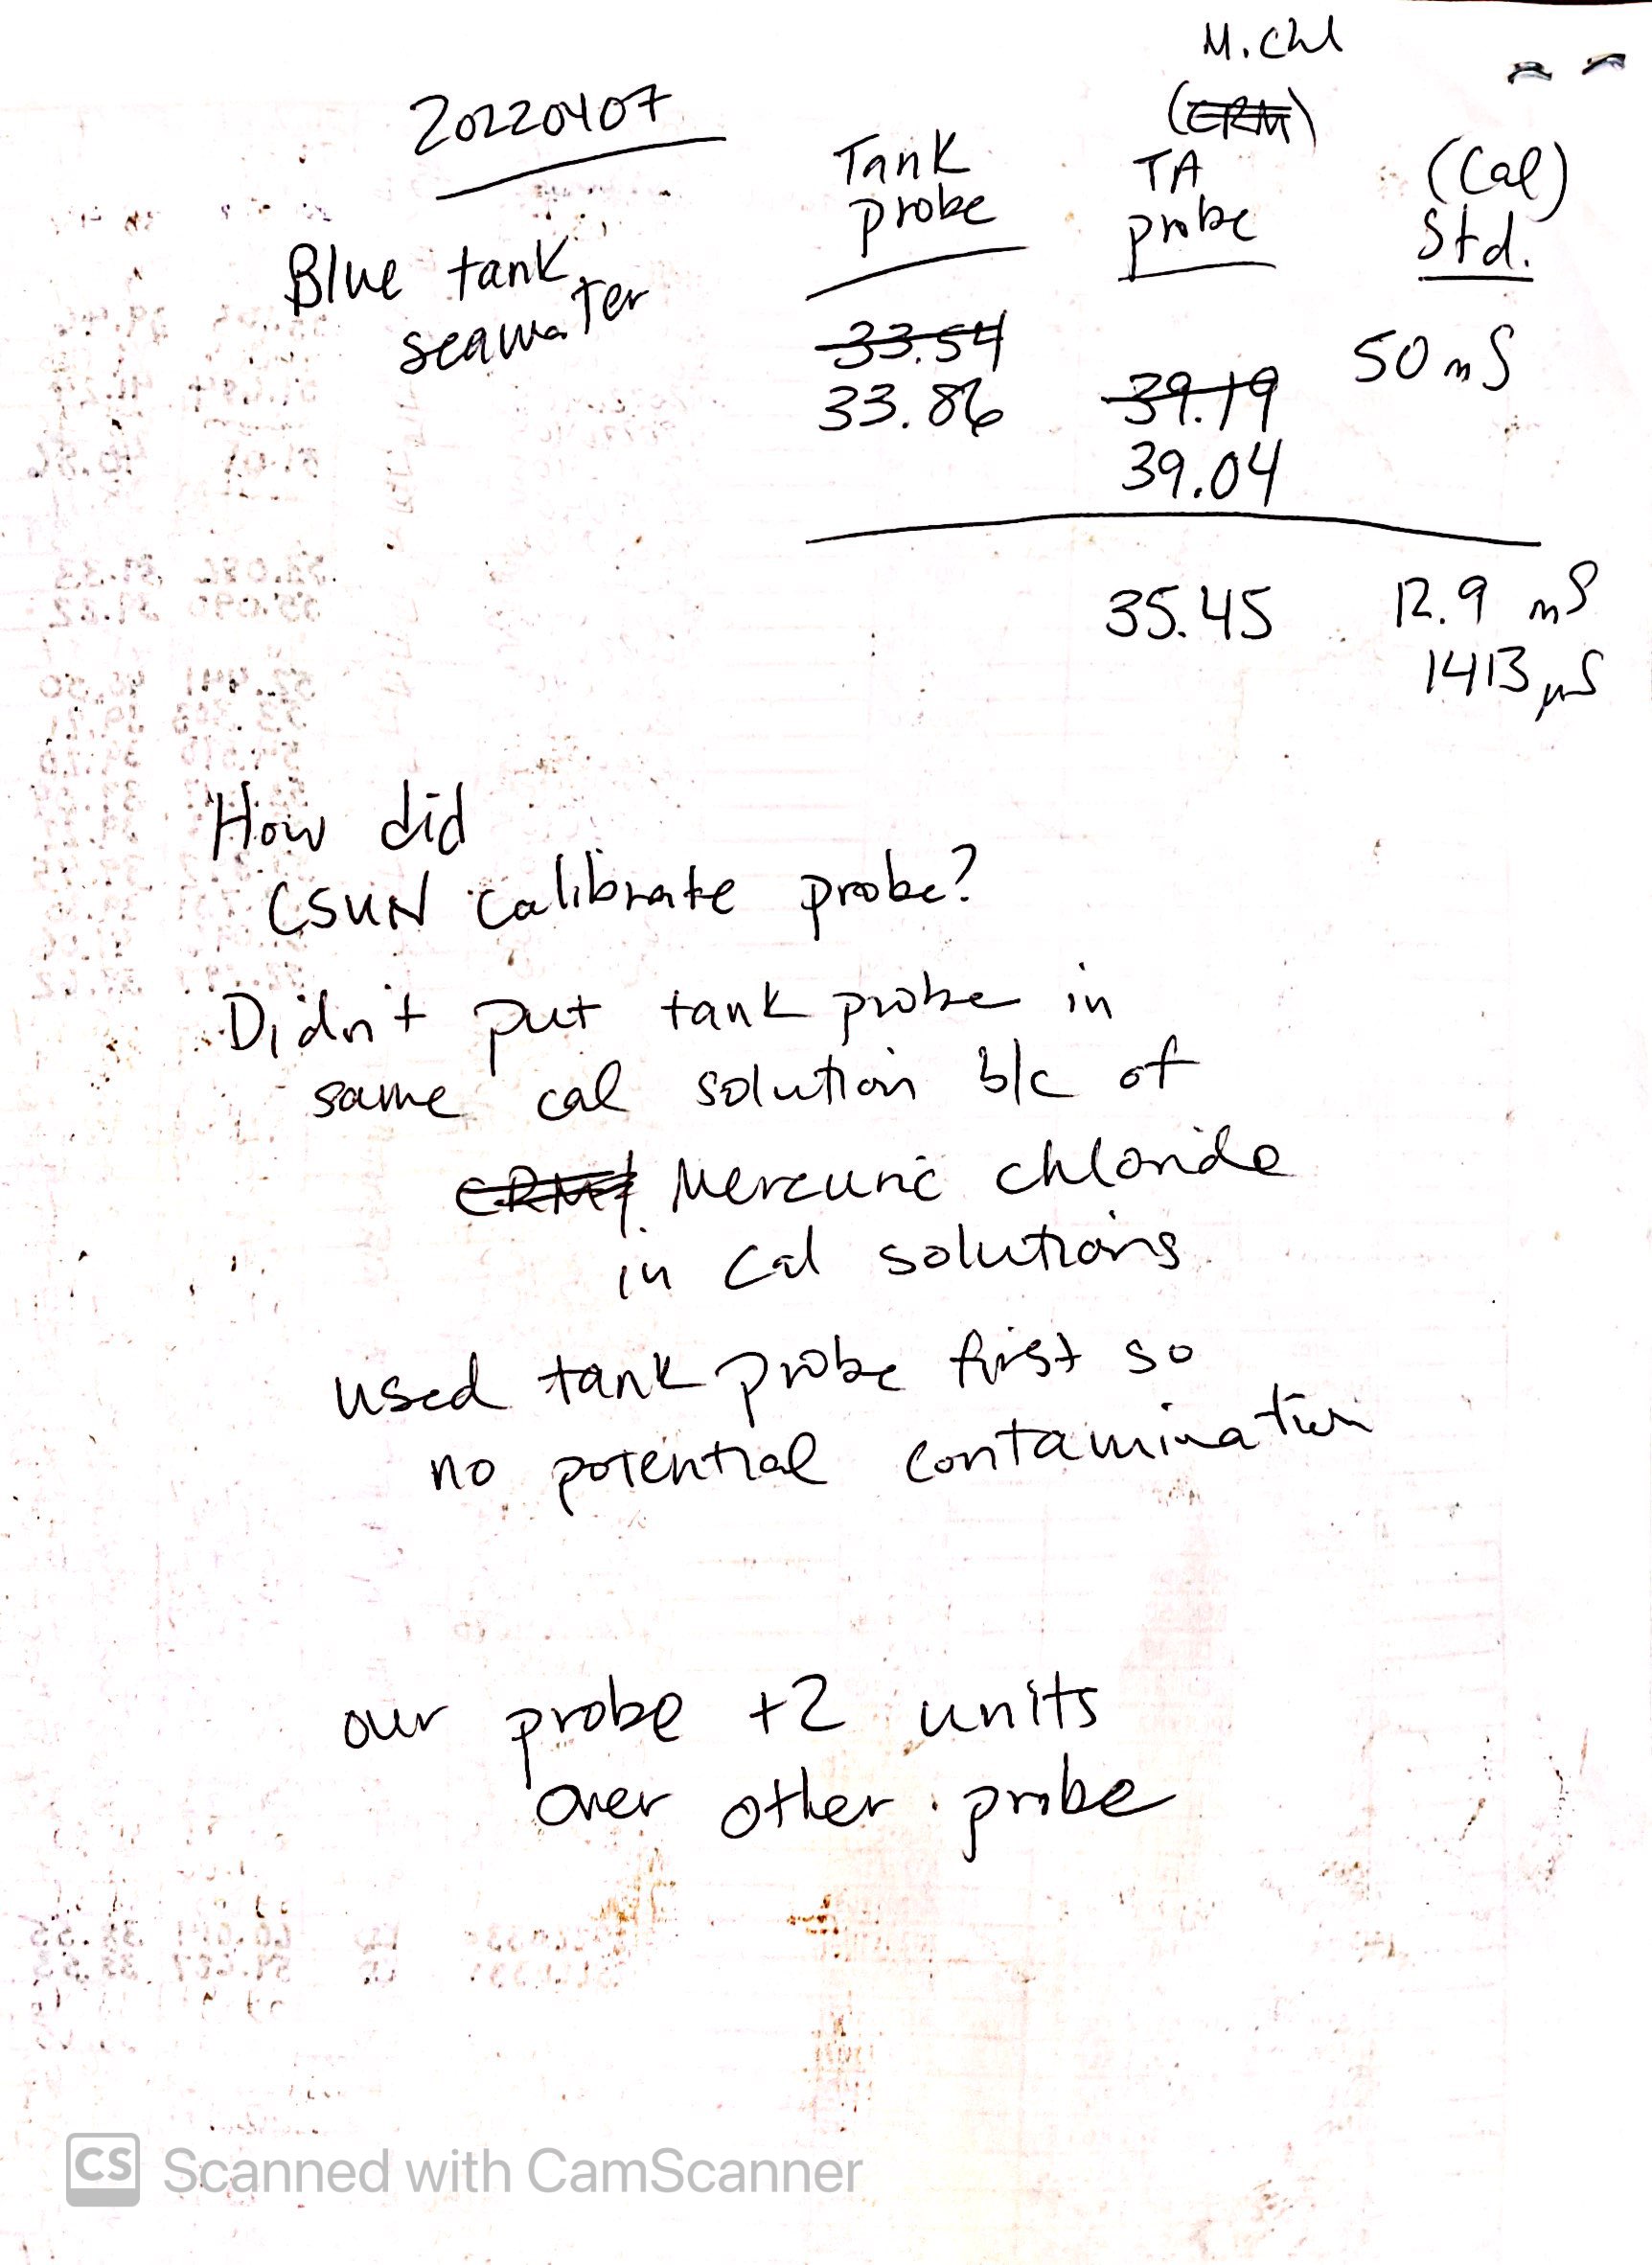 20220407
M. Chl
(CRM)
Tank probe
TA probe
(Cal) Std.
Blue tank seawater
33.54
33.86
39.19
39.04
50 mS
35.45
12.9 mS
1413 µS
How did
CSUN calibrate probe?
Didn't put tank probe in
same cal solution b/c of
CRM Mercuric chloride
in cal solutions
used tank probe first so
no potential contamination
our probe +2 units
over other probe
CS Scanned with CamScanner